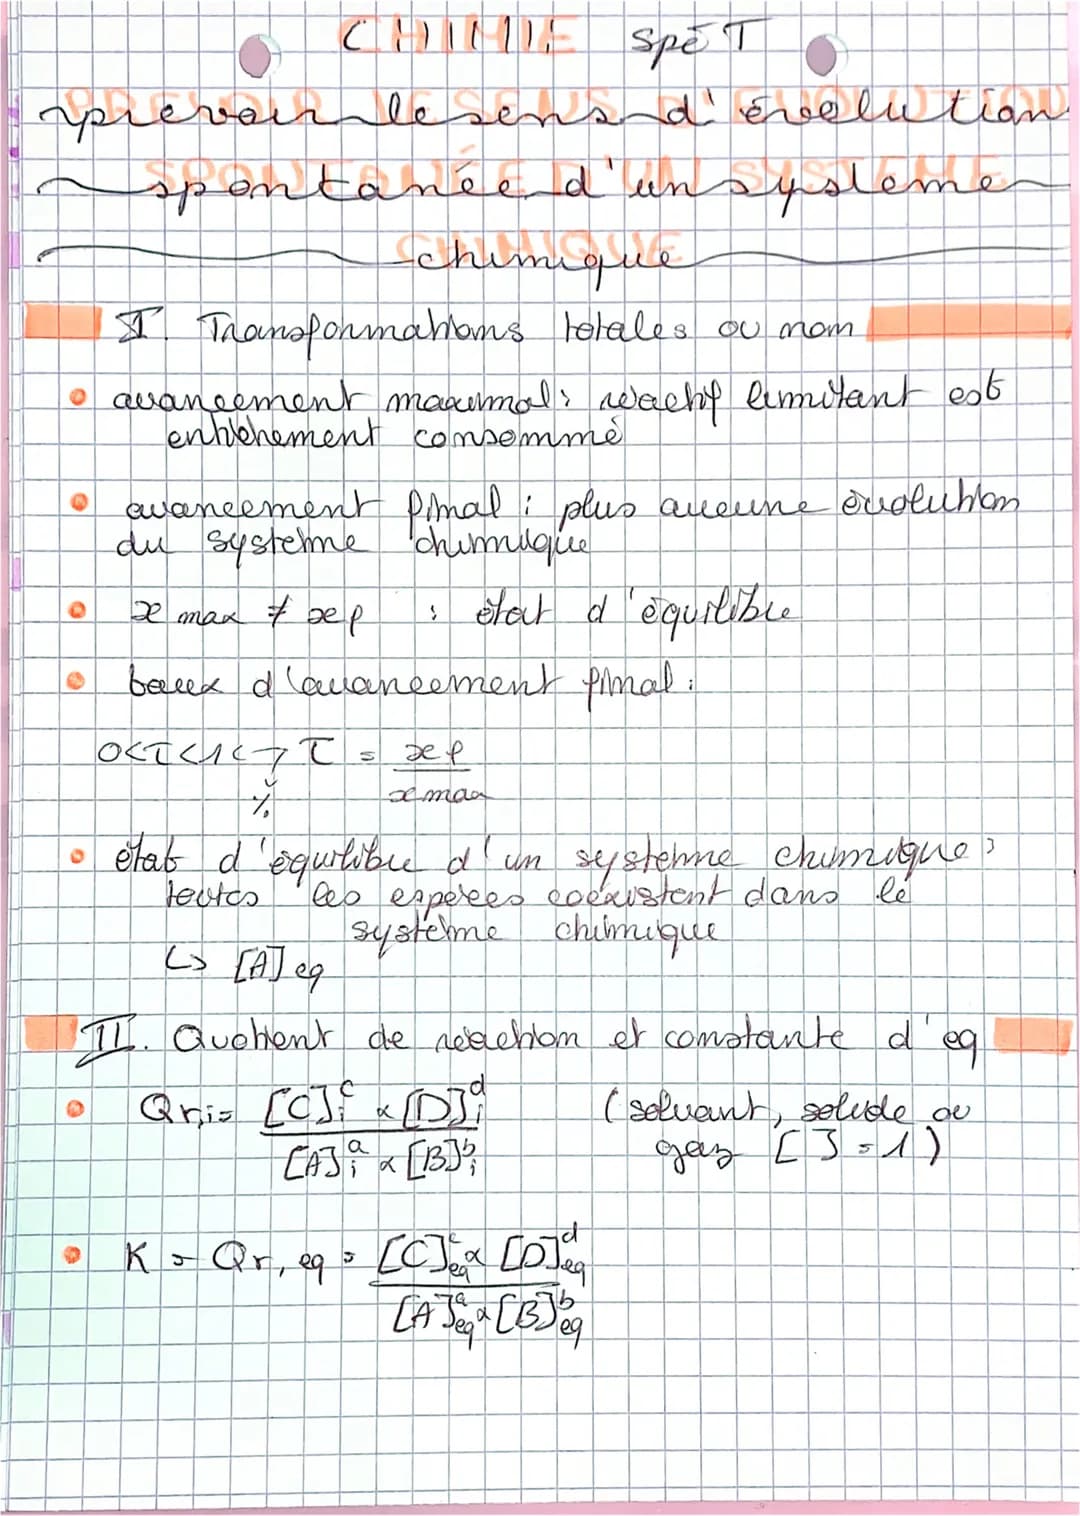 CHIMIE spé T
prévoir le sens d'évolution
spontanée d'un système
chimique
I. Transformations totales ou non
• avancement maximal : réactif limitant est
entièrement consommé
• avancement final : plus aucune évolution
du système chimique
• x max ≠ xf : état d'équilibre
• taux d'avancement final :
0<τ<1 ↔ τ = xf / x max
%
• état d'équilibre d'un système chimique :
toutes les espèces coexistent dans le
système chimique
↳ [A] eq
II. Quotient de réaction et constante d'eq
• Qr,i = [C]ᵢᶜ × [D]ᵢᵈ / [A]ᵢᵃ × [B]ᵢᵇ (solvant, solide ou
gaz [ ] = 1)
• K = Qr, eq = [C]ᶜeq × [D]ᵈeq / [A]ᵃeq × [B]ᵇeq